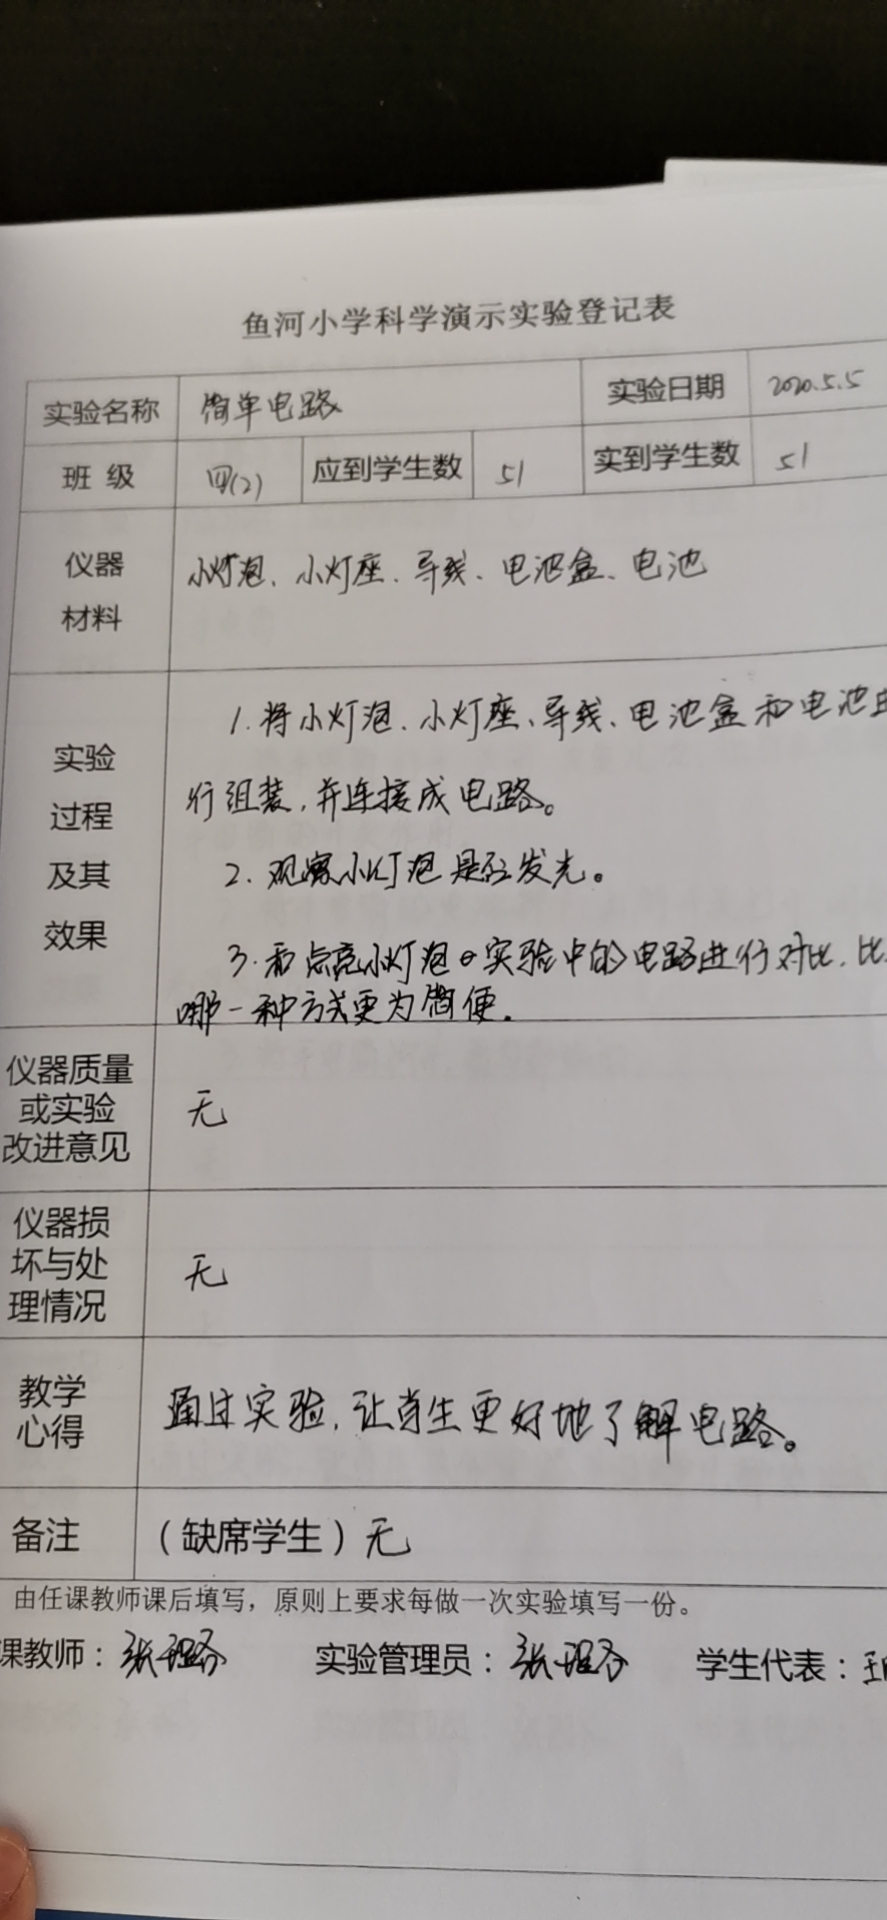 鱼河小学科学演示实验登记表
实验名称 简单电路 实验日期 2020.5.5
班 级 四(2) 应到学生数 51 实到学生数 51
仪器
材料
小灯泡、小灯座、导线、电池盒、电池
实验
过程
及其
效果
1.将小灯泡、小灯座、导线、电池盒和电池
行组装,并连接成电路。
2.观察小灯泡是否发光。
3.和点亮小灯泡 实验中的电路进行对比,比
哪一种方式更为简便.
仪器质量
或实验
改进意见
无
仪器损
坏与处
理情况
无
教学
心得
通过实验,让学生更好地了解电路。
备注 (缺席学生)无
由任课教师课后填写,原则上要求每做一次实验填写一份。
课教师: 张 实验管理员: 张 学生代表: 王